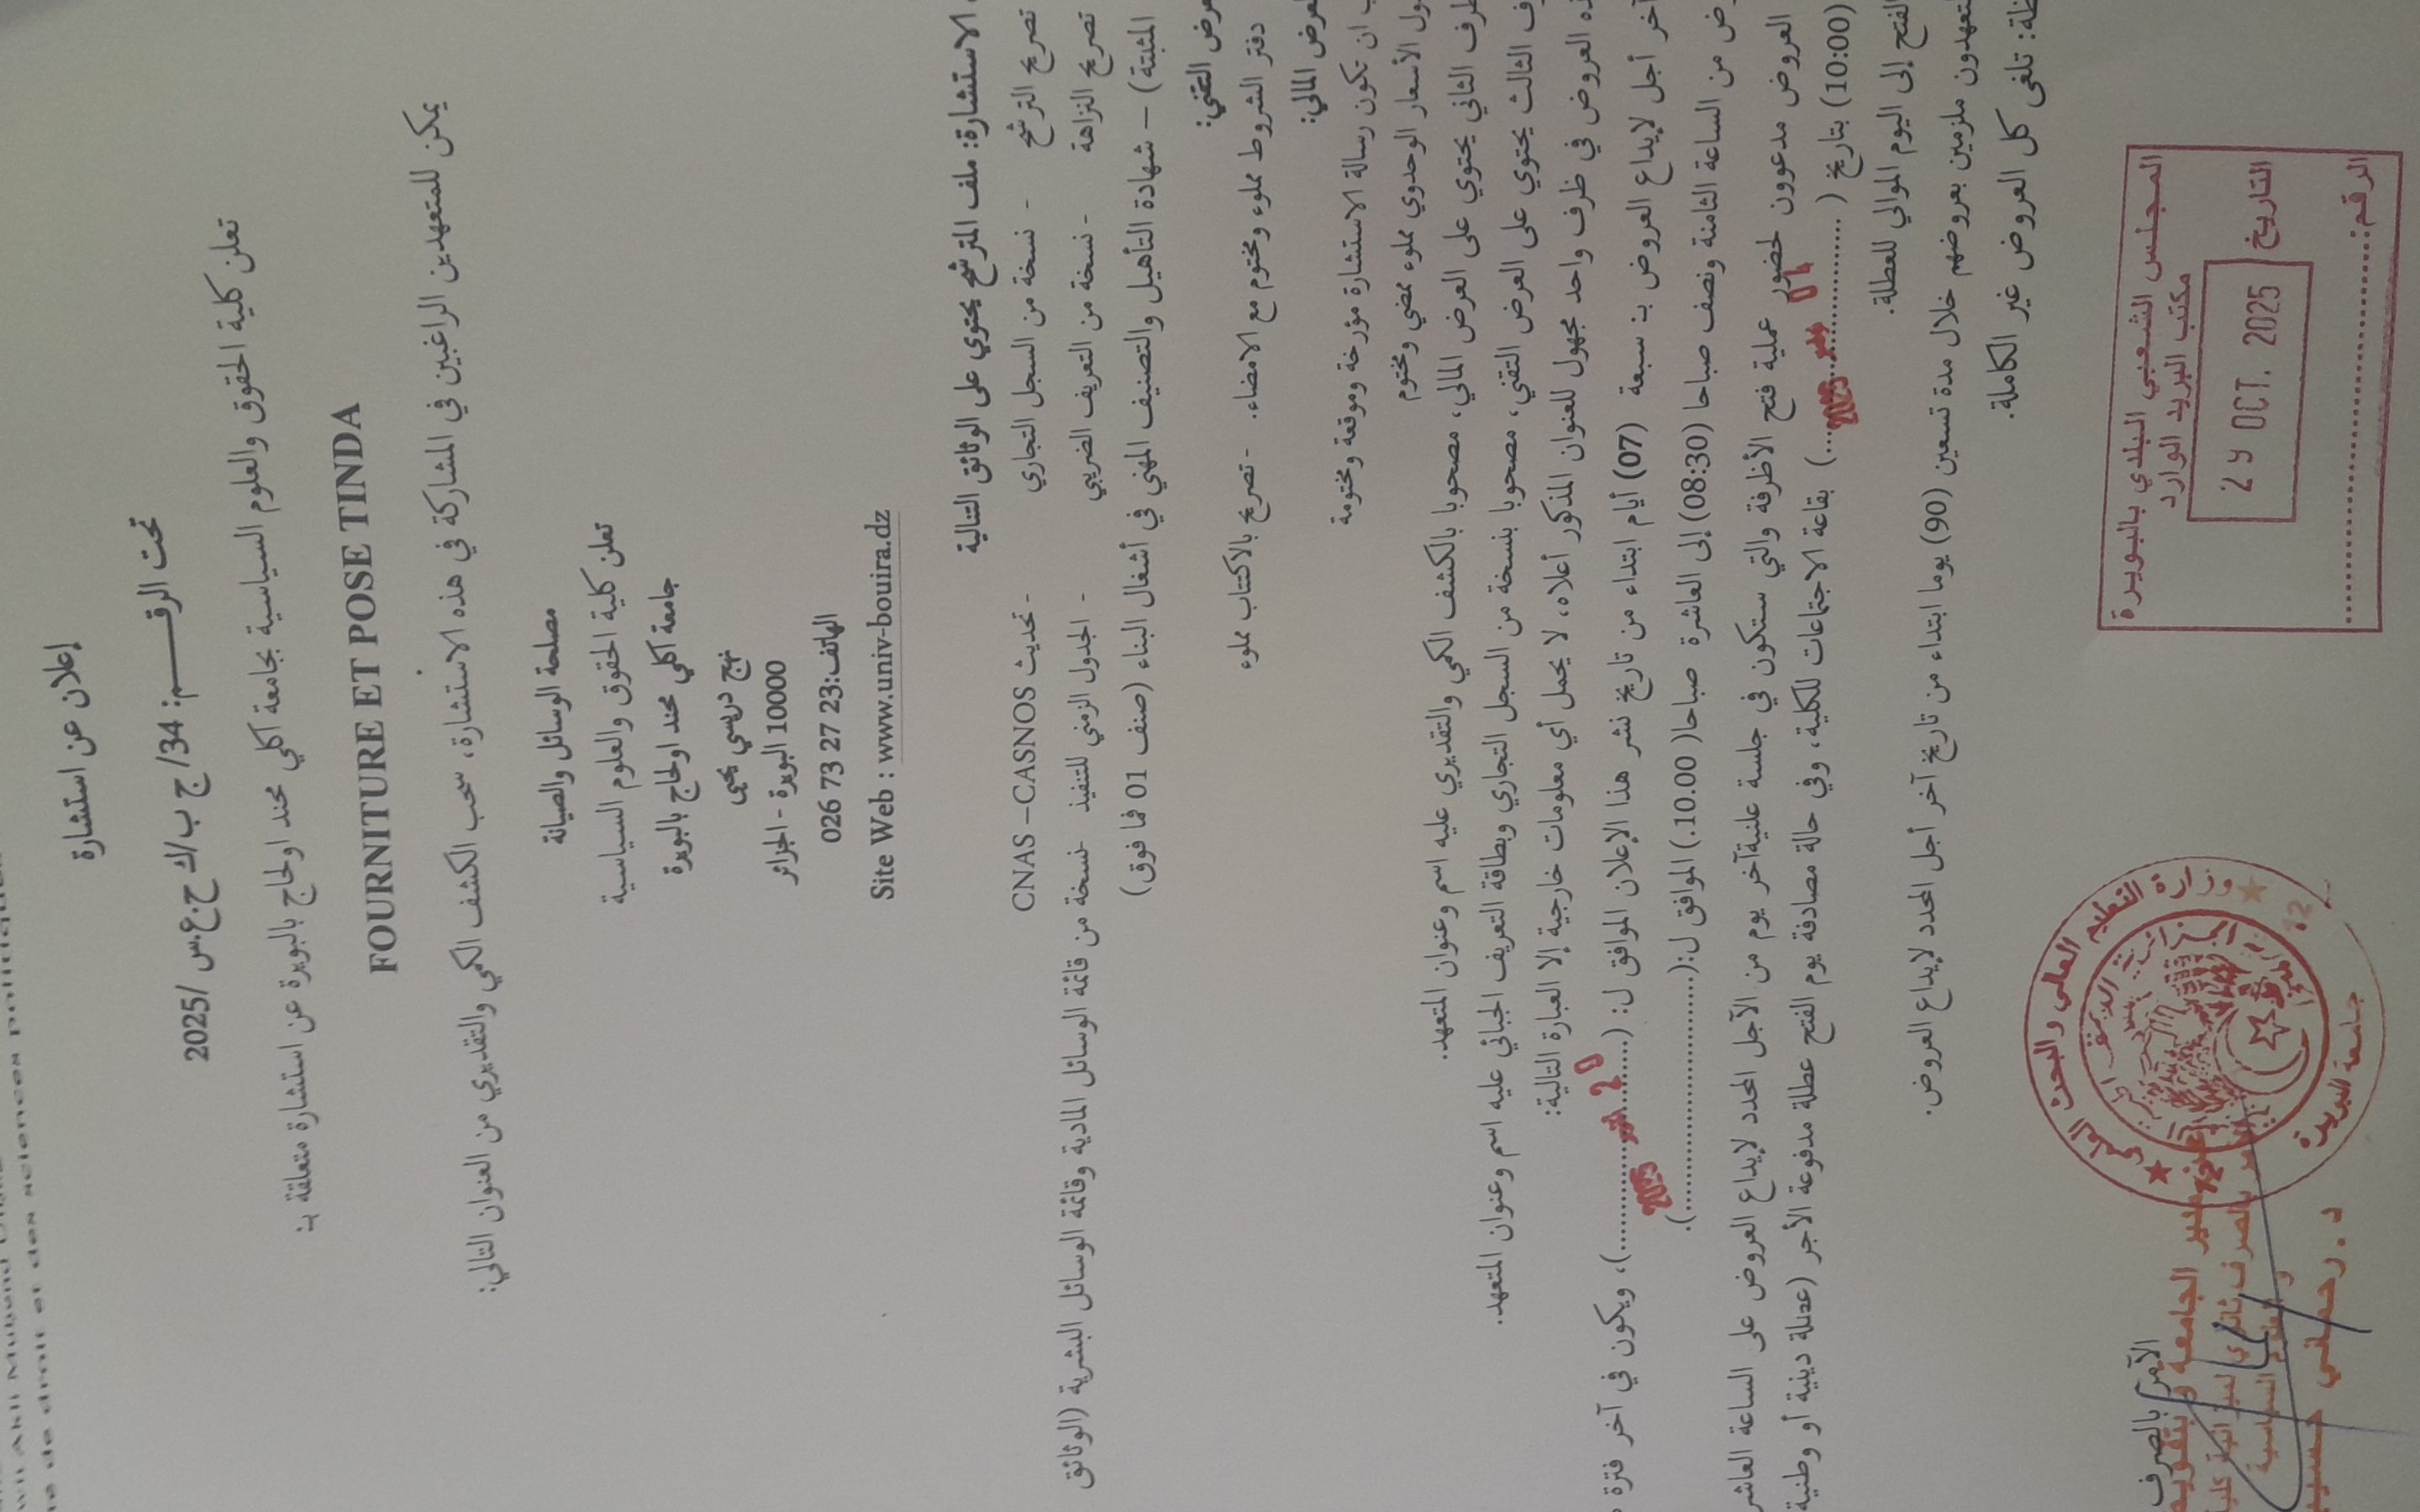 de droit et des sciences politiques
إعلان عن استشارة
تحت الرقـــــم: 34/ ج ب/ك ح.ع.س /2025
تعلن كلية الحقوق والعلوم السياسية بجامعة اكلي محند اولحاج بالبويرة عن استشارة متعلقة بـ:
FOURNITURE ET POSE TINDA
يمكن للمتعهدين الراغبين في المشاركة في هذه الاستشارة، سحب الكشف الكمي والتقديري من العنوان التالي:
مصلحة الوسائل والصيانة
تعلن كلية الحقوق والعلوم السياسية
جامعة اكلي محند اولحاج بالبويرة
نهج دريسي يحيى
10000 البويرة - الجزائر
الهاتف:23 27 73 026
Site Web : www.univ-bouira.dz
الاستشارة: ملف المترشح يحتوي على الوثائق التالية
تصريح الترشح - نسخة من السجل التجاري - تحديث CNAS –CASNOS
تصريح النزاهة - نسخة من التعريف الضريبي - الجدول الزمني للتنفيذ -نسخة من قائمة الوسائل المادية وقائمة الوسائل البشرية (الوثائق
المثبتة) – شهادة التأهيل والتصنيف المهني في أشغال البناء (صنف 01 فما فوق)
التقني:
دفتر الشروط مملوء ومختوم مع الامضاء. -تصريح بالاكتتاب مملوء
المالي:
ان تكون رسالة الاستشارة مؤرخة وموقعة ومختومة
الأسعار الوحدوي مملوء ممضي ومختوم
الثاني يحتوي على العرض المالي، مصحوبا بالكشف الكمي والتقديري عليه اسم وعنوان المتعهد.
الثالث يحتوي على العرض التقني، مصحوبا بنسخة من السجل التجاري وبطاقة التعريف الجبائي عليه اسم وعنوان المتعهد.
العروض في ظرف واحد مجهول للعنوان المذكور أعلاه، لا يحمل أي معلومات خارجية إلا العبارة التالية:
آخر أجل لإيداع العروض بـ: سبعة (07) أيام ابتداء من تاريخ نشر هذا الإعلان الموافق لـ: (....................)، ويكون في آخر فترة
2025
من الساعة الثامنة ونصف صباحا (08:30) إلى العاشرة صباحا( 10.00.) الموافق ل:(....................).
العروض مدعوون لحضور عملية فتح الأظرفة والتي ستكون في جلسة علنيةآخر يوم من الآجل المحدد لإيداع العروض على الساعة العاشر
(10:00) بتاريخ (....................) بقاعة الاجتماعات للكلية، وفي حالة مصادفة يوم الفتح عطلة مدفوعة الأجر (عطلة دينية أو وطنية
2025
الفتح إلى اليوم الموالي للعطلة.
ملزمين بعروضهم خلال مدة تسعين (90) يوما ابتداء من تاريخ آخر أجل المحدد لإيداع العروض.
تلغى كل العروض غير الكاملة.
المجلس الشعبي البلدي بالبويرة
مكتب البريد الوارد
التاريخ 29 OCT. 2025
الرقم:....................
الآمر بالصرف
وزارة التعليم العالي والبحث العلمي
جامعة البويرة